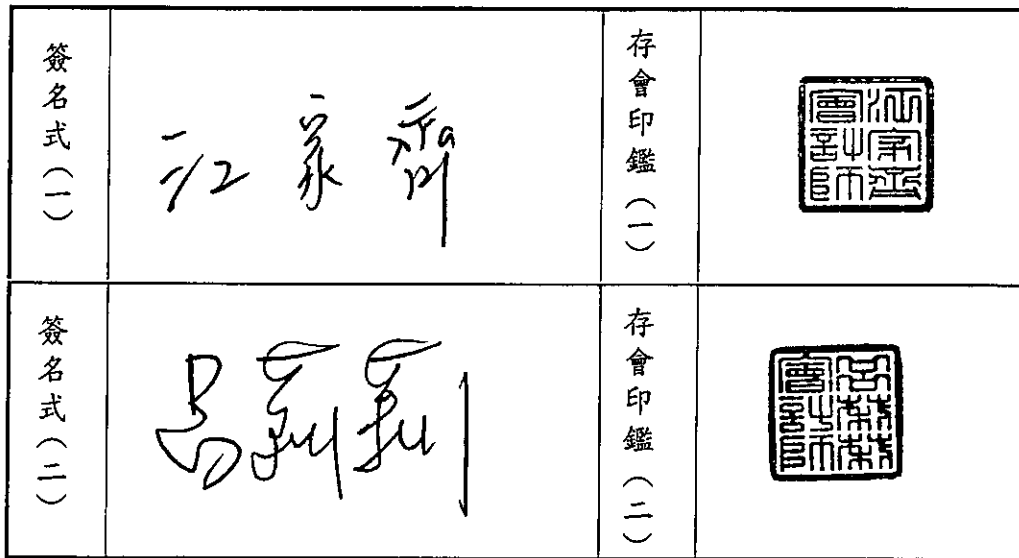 簽名式（一）
江家齊
存會印鑑（一）
江家齊
會計師
簽名式（二）
呂莉莉
存會印鑑（二）
會計師